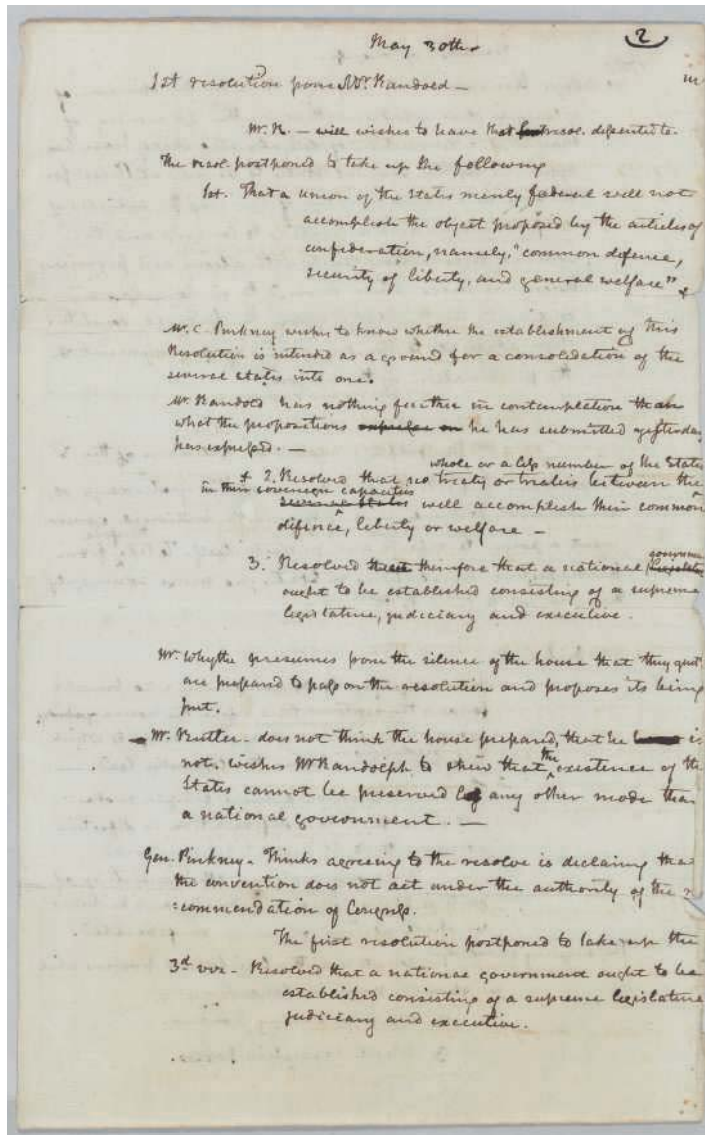 2
May 30th.
1st resolution from Mr. Randold —
Mr. R. — will wishes to have that resol. dissented to.
The resol. postponed to take up the following
1st. That a union of the states merely federal will not
accomplish the object proposed by the articles of
confederation, namely, "common defence,
security of liberty, and general welfare" +
Mr. C. Pinkney wishes to know whether the establishment of this
Resolution is intended as a ground for a consolidation of the
several states into one.
Mr. Randold has nothing further in contemplation than
what the propositions he has submitted yesterday
has expressed. —
whole or a less number of the States
+ 2. Resolved that no treaty or treaties between the
in their sovereign capacities
several States will accomplish their common
defence, liberty or welfare —
governme
3. Resolved therefore that a national
ought to be established consisting of a supreme
legislature, judiciary and executive.
Mr. Whythe presumes from the silence of the house that they
are prepared to pass on the resolution and proposes its being
put.
Mr. Butler - does not think the house prepared, that he is
not. wishes Mr Randolph to shew that the existence of the
States cannot be preserved by any other mode than
a national government. —
Gen. Pinkney - Thinks agreeing to the resolve is declaring tha
the convention does not act under the authority of the re
commendation of Congress.
The first resolution postponed to take up the
3d viz - Resolved that a national government ought to be
established consisting of a supreme legislature
judiciary and executive.